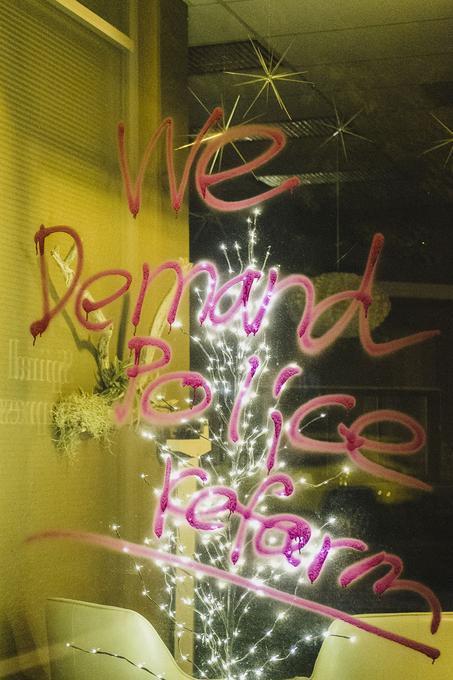 We
Demand
Police
refarm